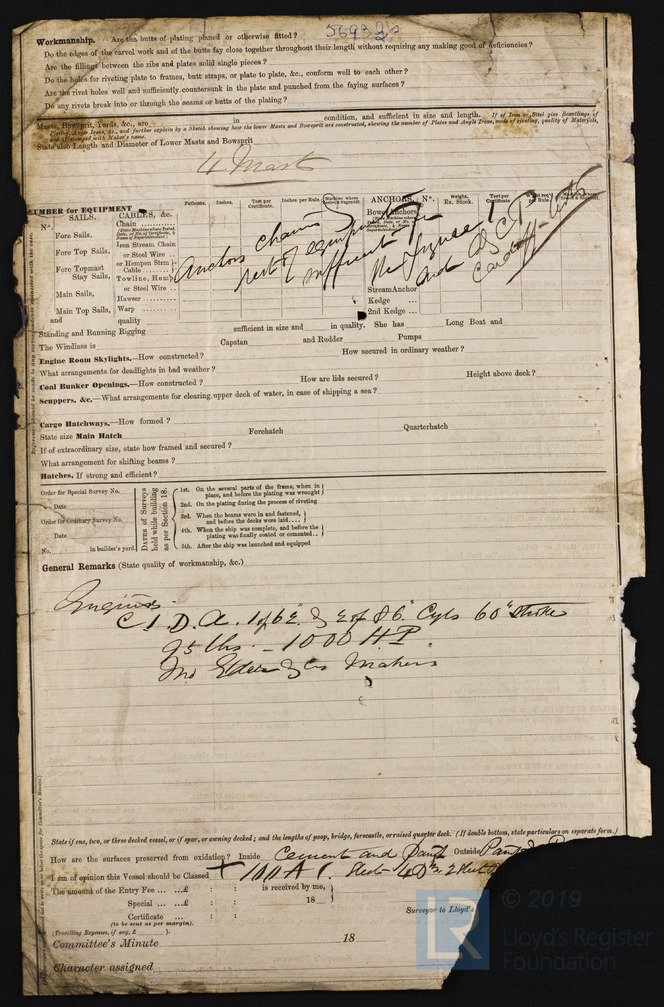 Workmanship. Are the butts of plating planed or otherwise fitted?
Do the edges of the carvel work and of the butts fay close together throughout their length without requiring any making good of deficiencies?
Are the fillings between the ribs and plates solid single pieces?
Do the holes for riveting plate to frames, butt straps, or plate to plate, &c., conform well to each other?
Are the rivet holes well and sufficiently countersunk in the plate and punched from the faying surfaces?
Do any rivets break into or through the seams or butts of the plating?
Masts, Bowsprit, Yards, &c., are in condition, and sufficient in size and length. If of Iron or Steel give Scantlings of
State also Length and Diameter of Lower Masts and Bowsprit
4 Mast
NUMBER for EQUIPMENT Fathoms. Inches. Test per Certificate. Inches per Rule. ANCHORS. Nos. Weight, Ex. Stock. Test per Certificate.
SAILS. CABLES, &c.
Nos. Chain Bower Anchors
Fore Sails, Iron Stream Chain
Fore Top Sails, or Steel Wire
Fore Topmast Stay Sails, or Hempen Strm Cable
Towline, Hemp
Main Sails, or Steel Wire Stream Anchor
Hawser Kedge
Main Top Sails, Warp 2nd Kedge
and quality
Anchors chains &
rest of equipment
sufficient
Standing and Running Rigging sufficient in size and in quality. She has Long Boat and
The Windlass is Capstan and Rudder Pumps
Engine Room Skylights.—How constructed? How secured in ordinary weather?
What arrangements for deadlights in bad weather?
Coal Bunker Openings.—How constructed? How are lids secured? Height above deck?
Scuppers, &c.—What arrangements for clearing upper deck of water, in case of shipping a sea?
Cargo Hatchways.—How formed?
State size Main Hatch Forehatch Quarterhatch
If of extraordinary size, state how framed and secured?
What arrangement for shifting beams?
Hatches, If strong and efficient?
Order for Special Survey No.
Date
Order for Ordinary Survey No.
Date
No. in builder's yard.
DATES of Surveys held while building as per Section 18.
1st. On the several parts of the frame, when in place, and before the plating was wrought
2nd. On the plating during the process of riveting
3rd. When the beams were in and fastened, and before the decks were laid
4th. When the ship was complete, and before the plating was finally coated or cemented
5th. After the ship was launched and equipped
General Remarks (State quality of workmanship, &c.)
Engines.
C I D. A. 1 of 62" & 2 of 86" Cyls 60" stroke
95 lbs. - 1000 HP.
Jno Elder & Co Makers
State if one, two, or three decked vessel, or if spar, or awning decked; and the lengths of poop, bridge, forecastle, or raised quarter deck. (If double bottom, state particulars on separate form.)
How are the surfaces preserved from oxidation? Inside Cement and Paint Outside Paint
I am of opinion this Vessel should be Classed + 100 A 1.
The amount of the Entry Fee ... ...£ : : is received by me,
Special ... ...£ : : 18
Certificate ... : :
(to be sent as per margin).
Surveyor to Lloyd's
(Travelling Expenses, if any, £ ).
Committee's Minute 18
Character assigned
© 2019
LR
Lloyd's Register
Foundation